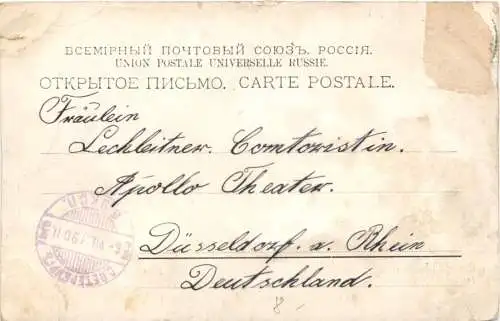 ВСЕМІРНЫЙ ПОЧТОВЫЙ СОЮЗЪ. РОССІЯ.
UNION POSTALE UNIVERSELLE RUSSIE.
ОТКРЫТОЕ ПИСЬМО. CARTE POSTALE.
Fräulein
Lechleitner. Comtoristin.
Apollo Theater.
Düsseldorf. a. Rhein
Deutschland.